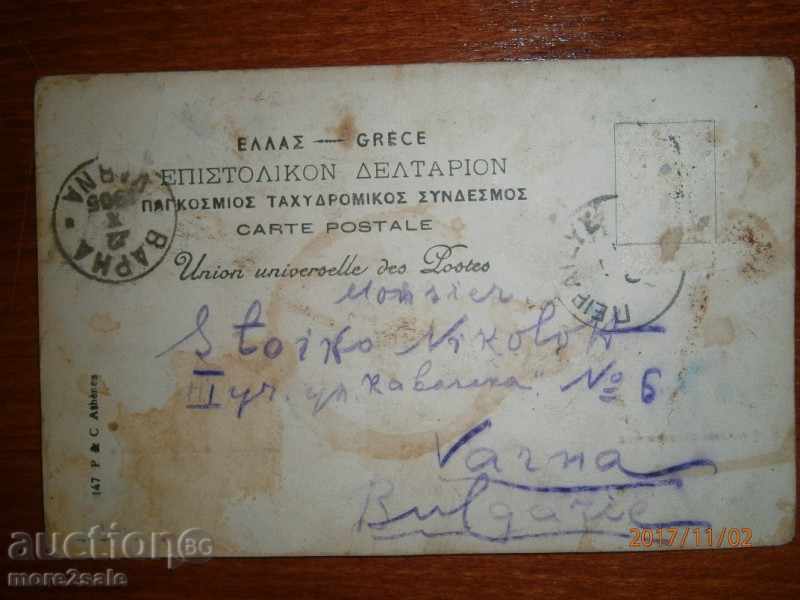 ΕΛΛΑΣ — GRÈCE
ΕΠΙΣΤΟΛΙΚΟΝ ΔΕΛΤΑΡΙΟΝ
ΠΑΓΚΟΣΜΙΟΣ ΤΑΧΥΔΡΟΜΙΚΟΣ ΣΥΝΔΕΣΜΟΣ
CARTE POSTALE
Union universelle des Postes
ВАРНА
VARNA
22 X 1905
ΠΕΙΡΑΙΕΥΣ
Monsier
Stoiko Nikoloff
III уч. ул. № 6
Varna
Bulgarie
147 P & C Athènes
auctionBG
more2sale
2017/11/02